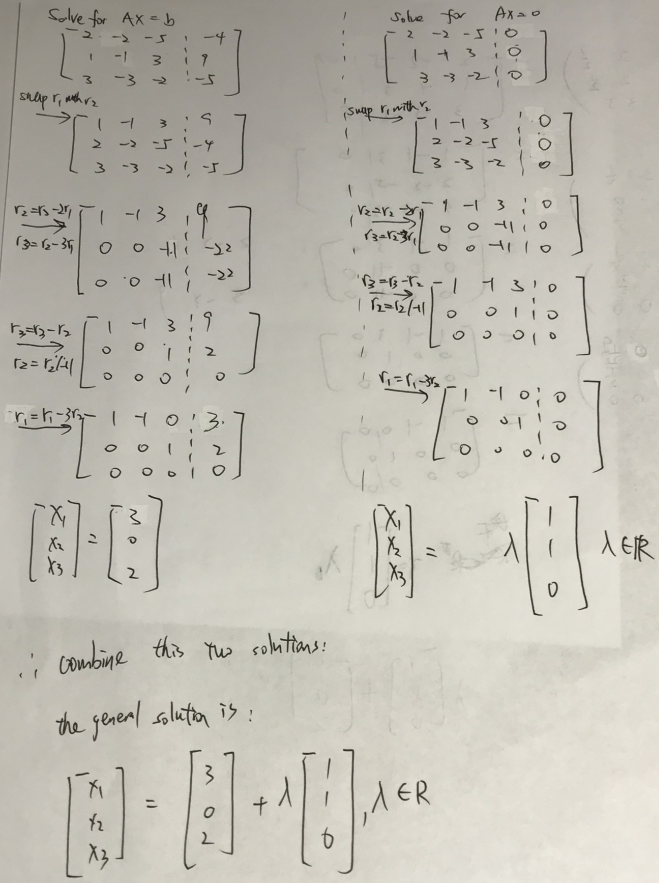 Solve for AX=b
[ 2 -2 -5 ¦ -4
1 -1 3 ¦ 9
3 -3 -2 ¦ -5 ]
swap r1 with r2
→ [ 1 -1 3 ¦ 9
2 -2 -5 ¦ -4
3 -3 -2 ¦ -5 ]
r2=r2-2r1
r3=r2-3r1
→ [ 1 -1 3 ¦ 9
0 0 -11 ¦ -22
0 0 -11 ¦ -22 ]
r3=r3-r2
r2=r2/-11
→ [ 1 -1 3 ¦ 9
0 0 1 ¦ 2
0 0 0 ¦ 0 ]
r1=r1-3r2
→ [ 1 -1 0 ¦ 3
0 0 1 ¦ 2
0 0 0 ¦ 0 ]
[ x1
x2
x3 ] = [ 3
0
2 ]
Solve for AX=0
[ 2 -2 -5 ¦ 0
1 -1 3 ¦ 0
3 -3 -2 ¦ 0 ]
swap r1 with r2
→ [ 1 -1 3 ¦ 0
2 -2 -5 ¦ 0
3 -3 -2 ¦ 0 ]
r2=r2-2r1
r3=r2-3r1
→ [ 1 -1 3 ¦ 0
0 0 -11 ¦ 0
0 0 -11 ¦ 0 ]
r3=r3-r2
r2=r2/-11
→ [ 1 -1 3 ¦ 0
0 0 1 ¦ 0
0 0 0 ¦ 0 ]
r1=r1-3r2
→ [ 1 -1 0 ¦ 0
0 0 1 ¦ 0
0 0 0 ¦ 0 ]
[ x1
x2
x3 ] = λ [ 1
1
0 ] λ∈R
∴ combine this two solutions:
the general solution is:
[ x1
x2
x3 ] = [ 3
0
2 ] + λ [ 1
1
0 ], λ∈R